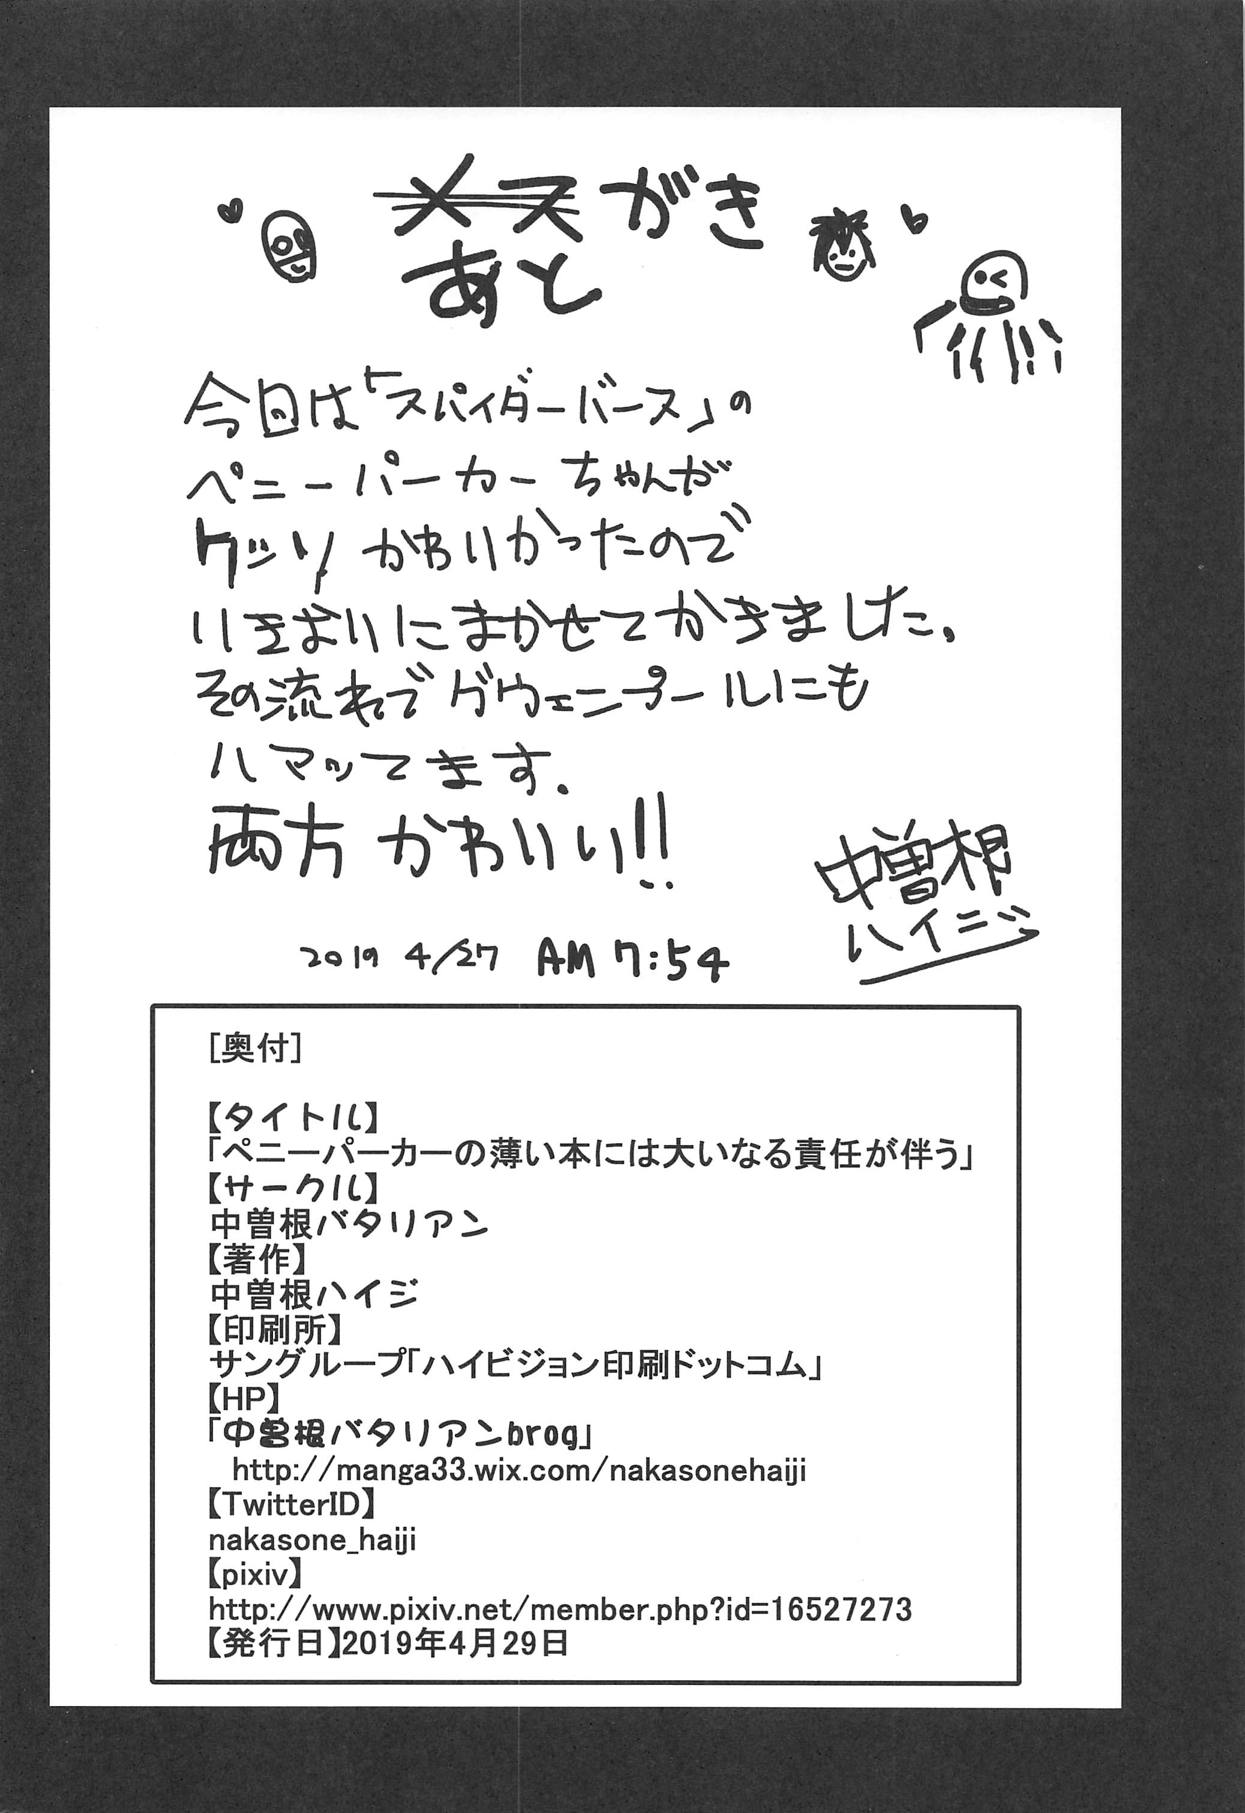 メスがき
あと
今回は「スパイダーバース」の
ペニーパーカーちゃんが
クッソかわいかったので
いきおいにまかせてかきました。
その流れでグウェンプールにも
ハマッてます.
両方かわいい!!
中曽根
ハイジ
2019 4/27 AM 7:54
[奥付]
【タイトル】
「ペニーパーカーの薄い本には大いなる責任が伴う」
【サークル】
中曽根バタリアン
【著作】
中曽根ハイジ
【印刷所】
サングループ「ハイビジョン印刷ドットコム」
【HP】
「中曽根バタリアンbrog」
http://manga33.wix.com/nakasonehaiji
【TwitterID】
nakasone_haiji
【pixiv】
http://www.pixiv.net/member.php?id=16527273
【発行日】2019年4月29日